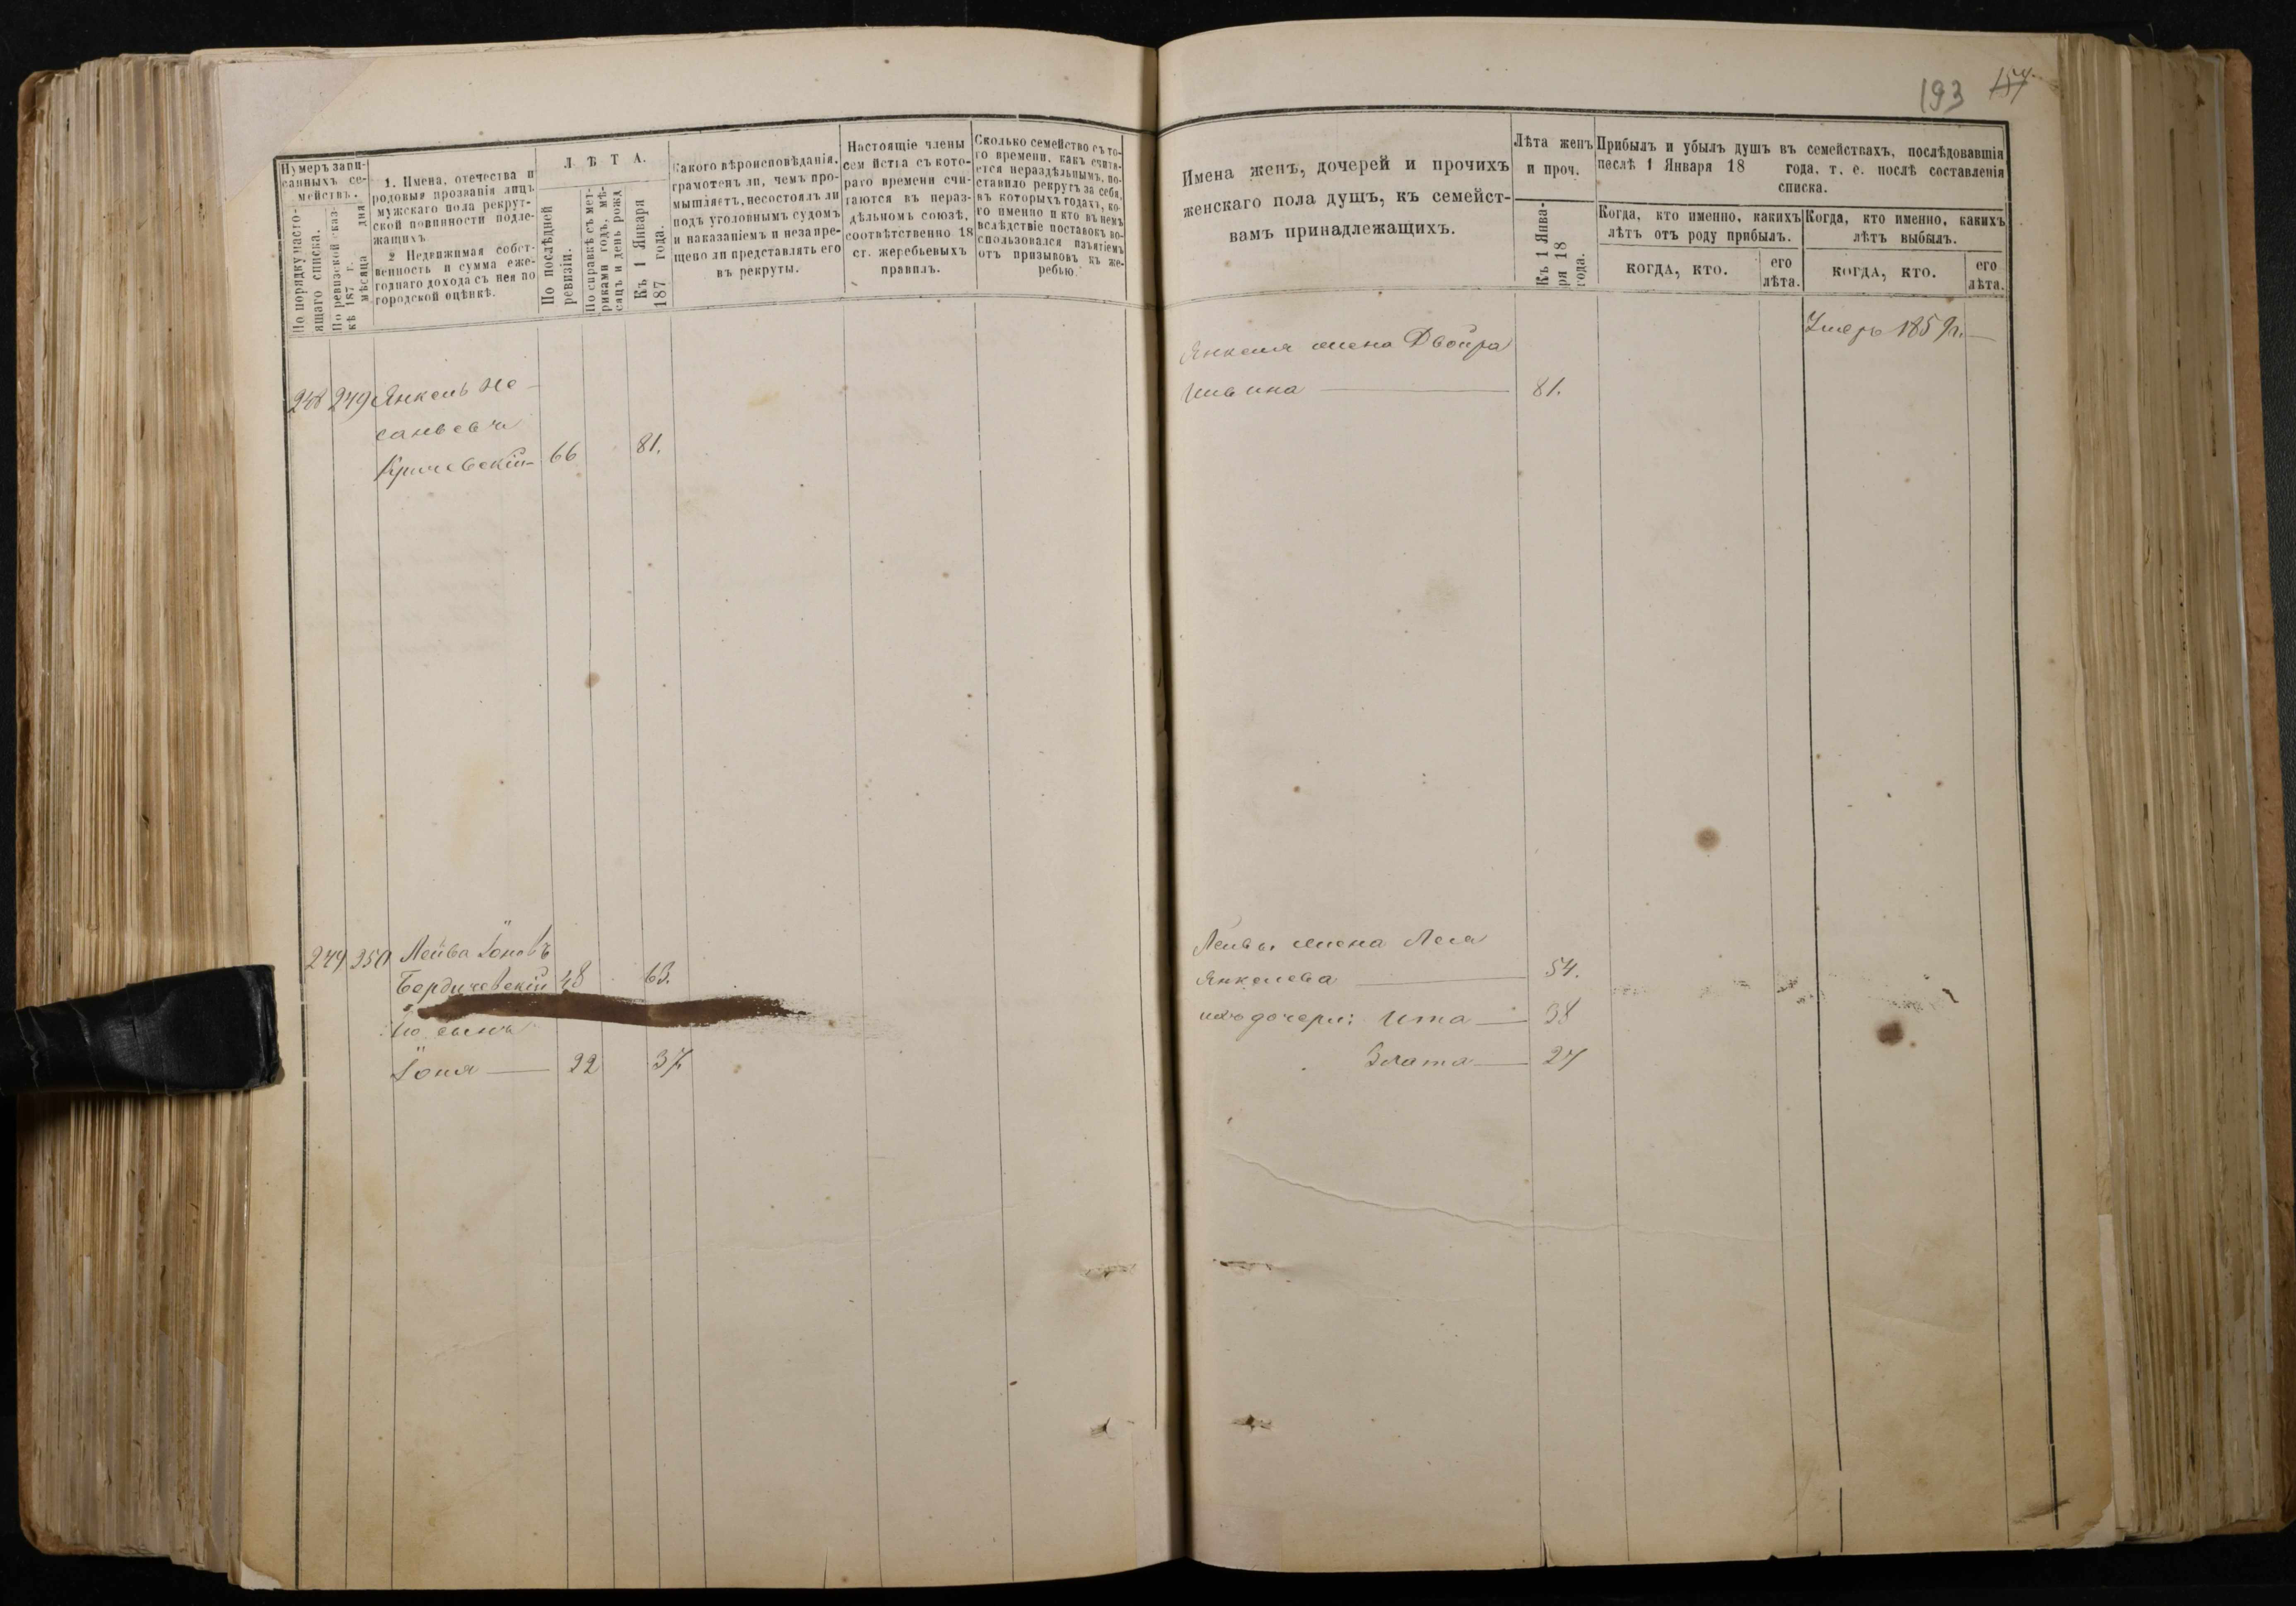 193 154
Нумеръ запи-
санныхъ се-
мействъ.
По порядку насто-
ящаго списка.
По ревизской сказ-
кѣ 187 г.
мѣсяца дня
1. Имена, отечества и
родовыя прозванія лицъ
мужскаго пола рекрут-
ской повинности подле-
жащихъ.
2 Недвижимая собст-
венность и сумма еже-
годнаго дохода съ нея по
городской оцѣнкѣ.
Л Ѣ Т А.
По послѣдней
ревизіи.
По справкѣ съ мет-
риками годъ, мѣ-
сяцъ и день рожд
Къ 1 Января
187 года.
Какого вѣроисповѣданія,
грамотенъ ли, чемъ про-
мышляетъ, несостоялъ ли
подъ уголовнымъ судомъ
и наказаніемъ и незапре-
щено ли представлять его
въ рекруты.
Настоящіе члены
сем йства съ кото-
раго времени счи-
таются въ нераз-
дѣльномъ союзѣ,
соотвѣтственно 18
ст. жеребьевыхъ
правилъ.
Сколько семейство съ то-
го времени, какъ счита-
ется нераздѣльнымъ, по-
ставило рекрутъ за себя,
въ которыхъ годахъ, ко-
го именно и кто въ немъ
вслѣдствіе поставокъ во-
спользовался изъятіемъ
отъ призывовъ къ же-
ребью.
Имена женъ, дочерей и прочихъ
женскаго пола душъ, къ семейст-
вамъ принадлежащихъ.
Лѣта женъ
и проч.
Къ 1 Янва-
ря 18
года.
Прибылъ и убылъ душъ въ семействахъ, послѣдовавшія
послѣ 1 Января 18 года, т. е. послѣ составленія
списка.
Когда, кто именно, какихъ
лѣтъ отъ роду прибылъ.
КОГДА, КТО.
его
лѣта.
Когда, кто именно, какихъ
лѣтъ выбылъ.
КОГДА, КТО.
его
лѣта.
248 249 Янкель Не-
саньевъ
Кричевскій 66 81.
Янкеля жена Двойра
81.
Умеръ 185
249 350 Лейба Іоновъ
Бердичевскій 48 63.
его сынъ
Іоня 22 37
Лейбы жена Лея
Янкелева 54.
ихъ дочери: Ита 38
Злата 27